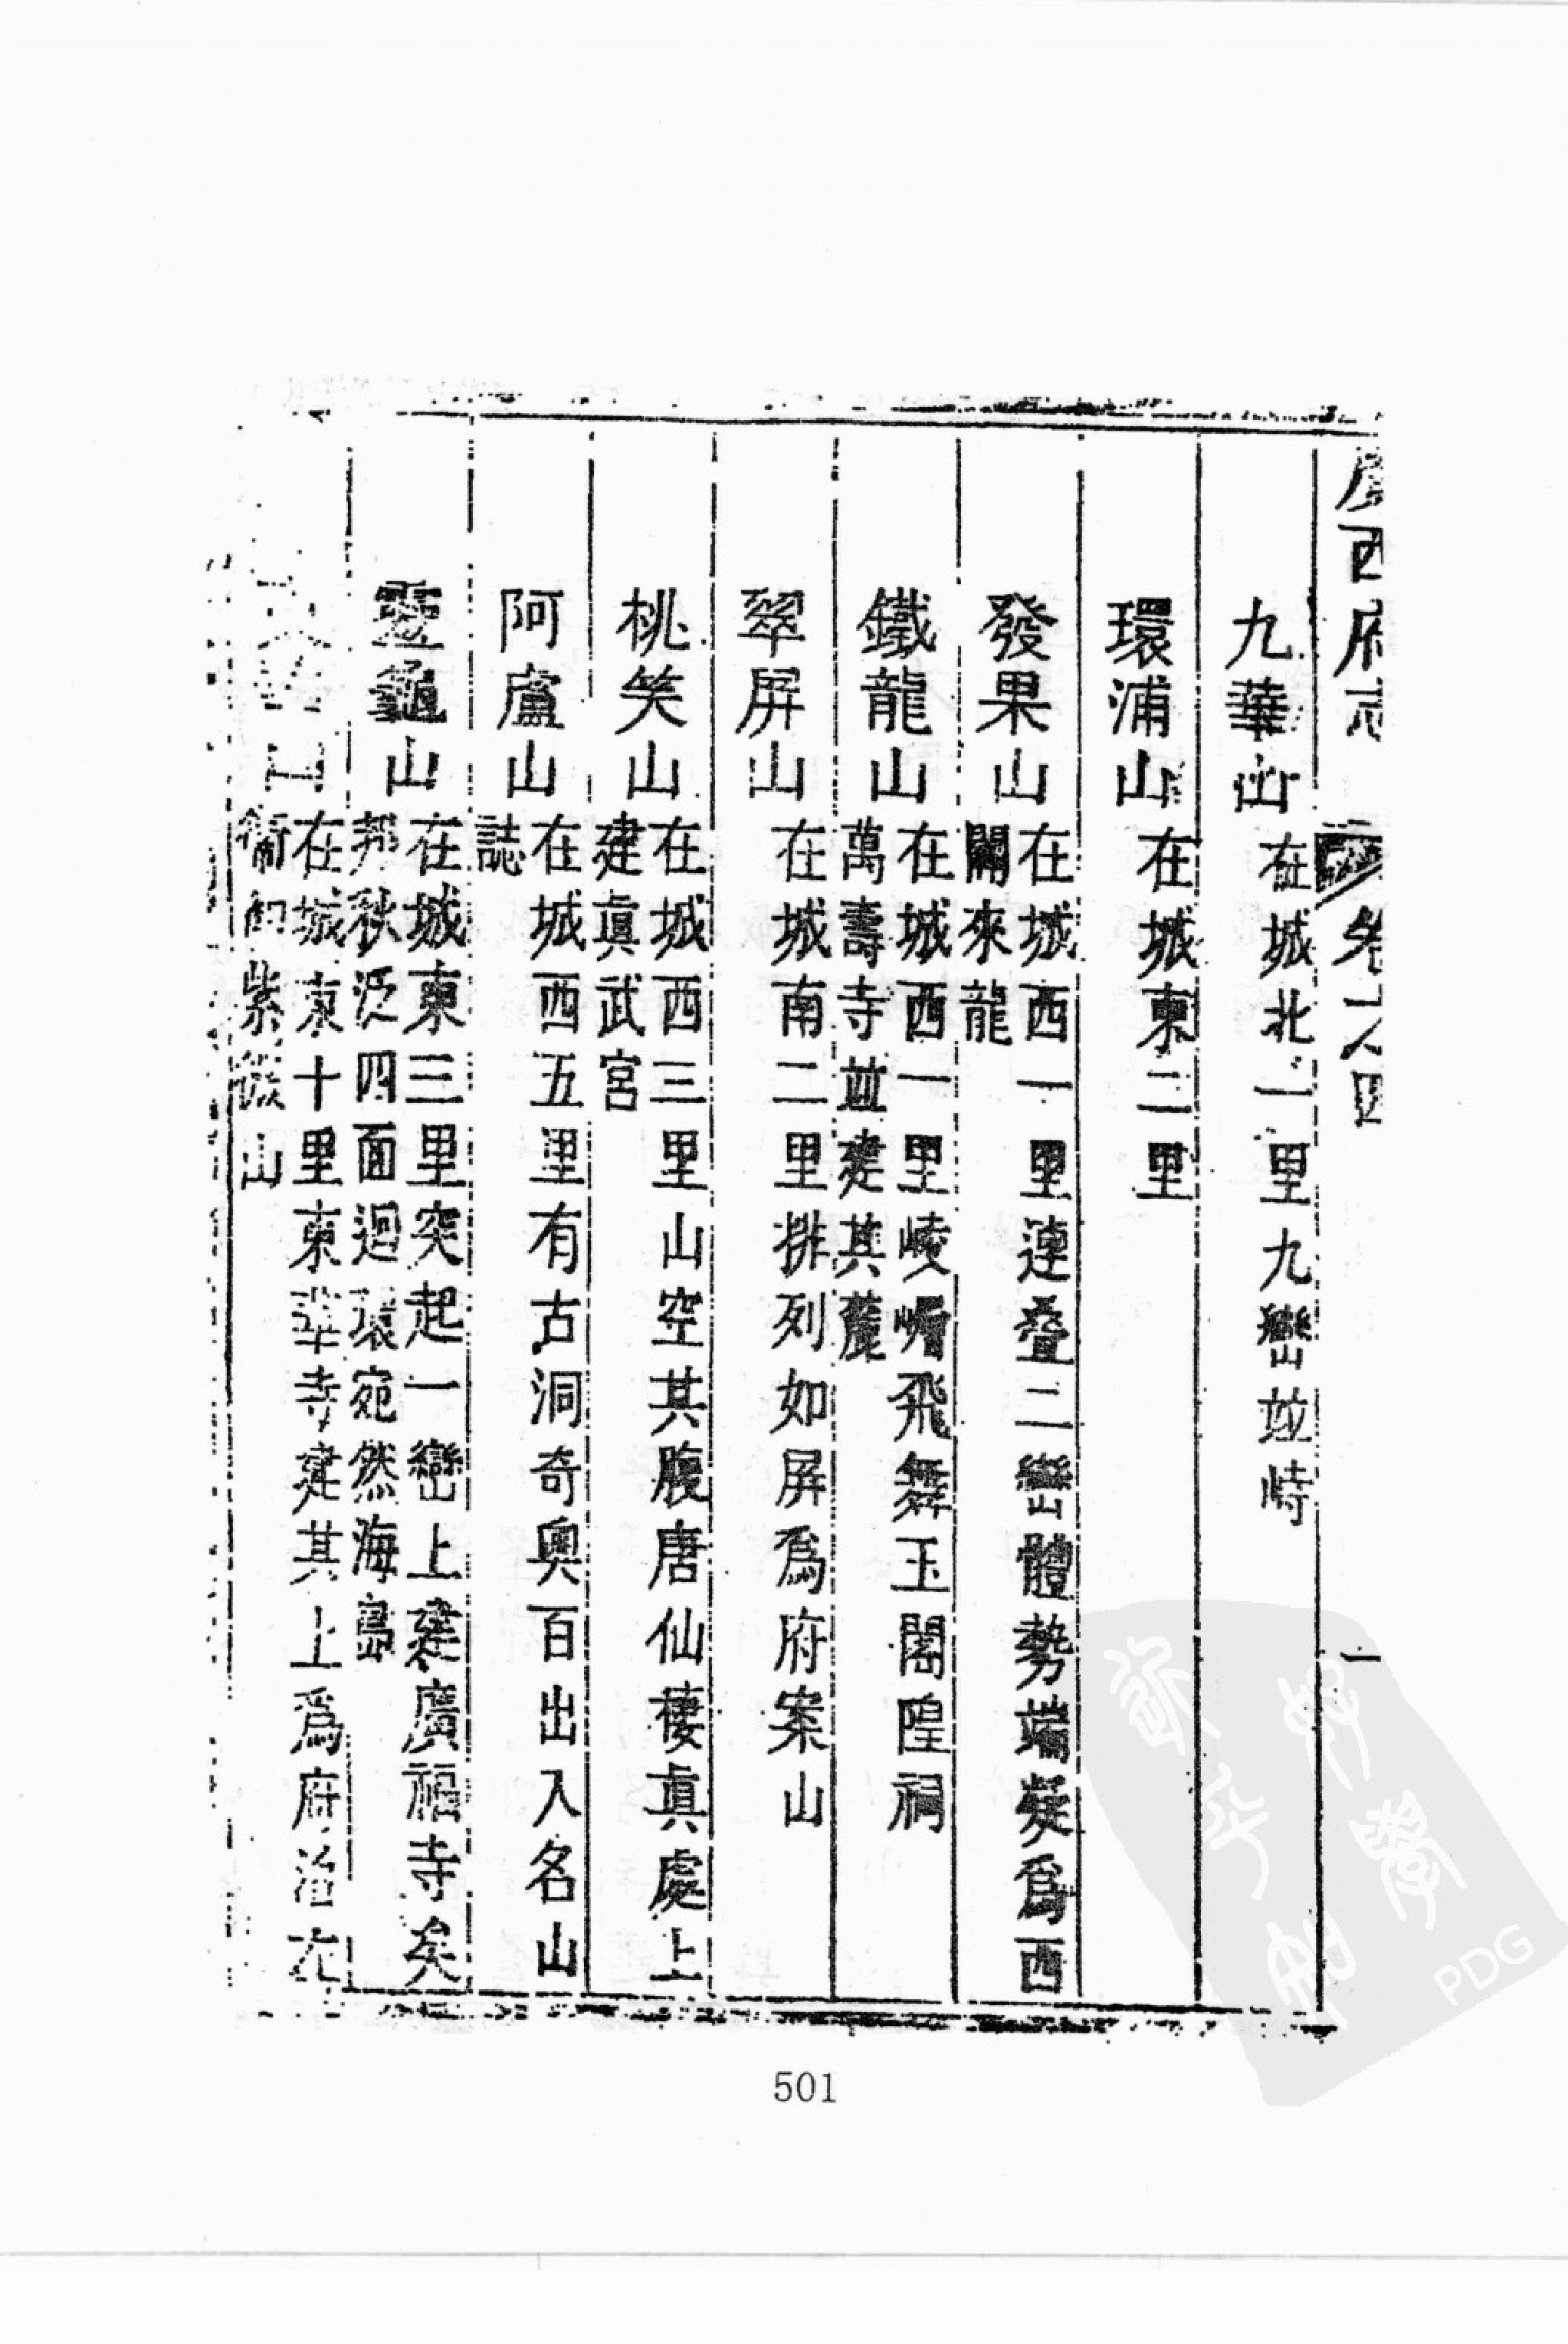 廣西府志　卷之四　一
九華山在城北一里九巒並峙
環浦山在城東二里
發果山在城西一里連叠二巒體勢端凝爲西
關來龍
鐵龍山在城西一里崚嶒飛舞玉閣隍祠
萬壽寺並建其麓
翠屏山在城南二里排列如屏爲府案山
桃笑山在城西三里山空其腹唐仙棲真處上
建真武宮
阿盧山在城西五里有古洞奇奧百出入名山
誌
靈龜山在城東三里突起一巒上建廣福寺矣
邦秋泛四面迴環宛然海島
山在城東十里東華寺建其上爲府治左
衛卽紫微山
501
PDG